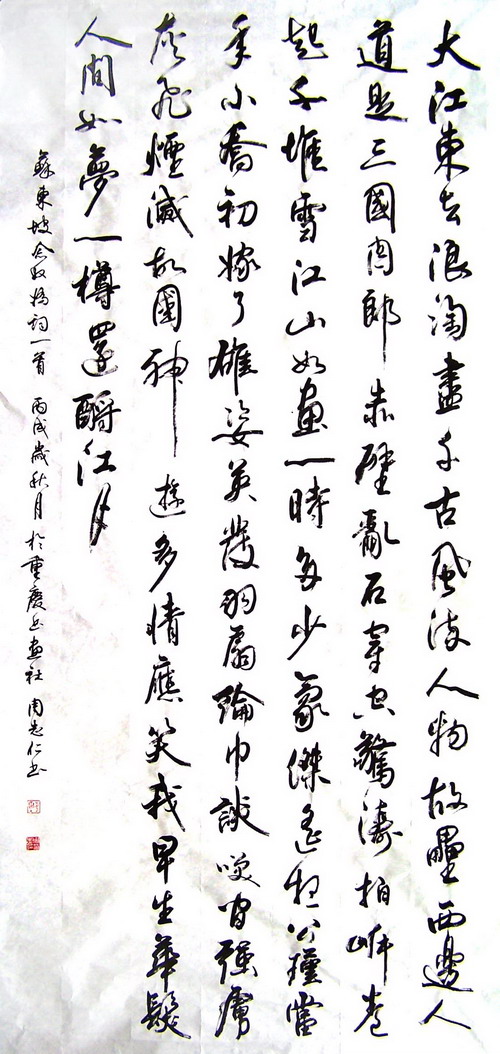 大江東去浪淘盡千古風流人物故壘西邊人
道是三國周郎赤壁亂石穿空驚濤拍岸卷
起千堆雪江山如畫一時多少豪傑遙想公瑾當
年小喬初嫁了雄姿英發羽扇綸巾談笑間強虜
灰飛煙滅故國神遊多情應笑我早生華髮
人間如夢一樽還酹江月
蘇東坡念奴嬌詞一首 丙戌歲秋月於重慶书畫社 周志仁书